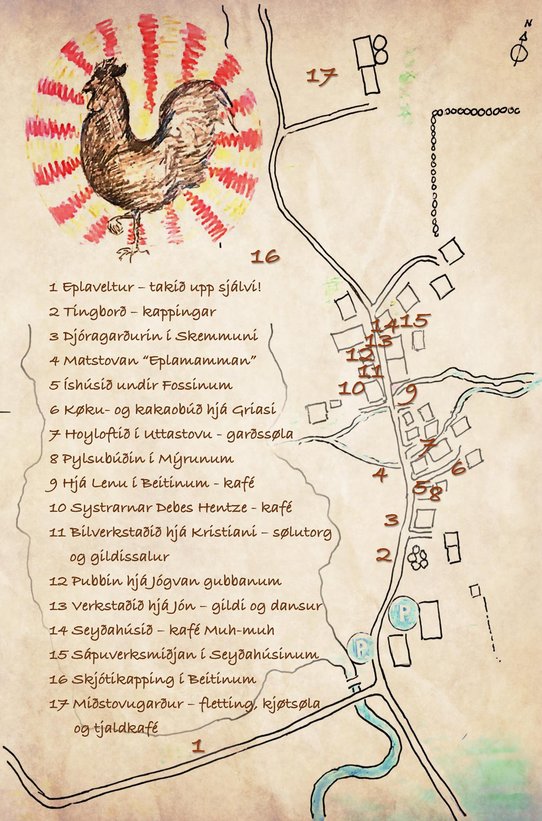 N
17
16
1 Eplaveltur – takið upp sjálvi!
2 Tingborð – kappingar
3 Djóragarðurin í Skemmuni
4 Matstovan “Eplamamman”
5 Íshúsið undir Fossinum
6 Køku- og kakaobúð hjá Griasi
7 Hoyloftið í Uttastovu - garðssøla
8 Pylsubúðin í Mýrunum
9 Hjá Lenu í Beitinum - kafé
10 Systrarnar Debes Hentze - kafé
11 Bilverkstaðið hjá Kristiani – sølutorg
og gildissalur
12 Pubbin hjá Jógvan gubbanum
13 Verkstaðið hjá Jón – gildi og dansur
14 Seyðahúsið – kafé Muh-muh
15 Sápuverksmiðjan í Seyðahúsinum
16 Skjótikapping í Beitinum
17 Miðstovugarður – fletting, kjøtsøla
og tjaldkafé
14 15
13
12
11
10
9
7
6
4
5 8
3
2
P
P
1